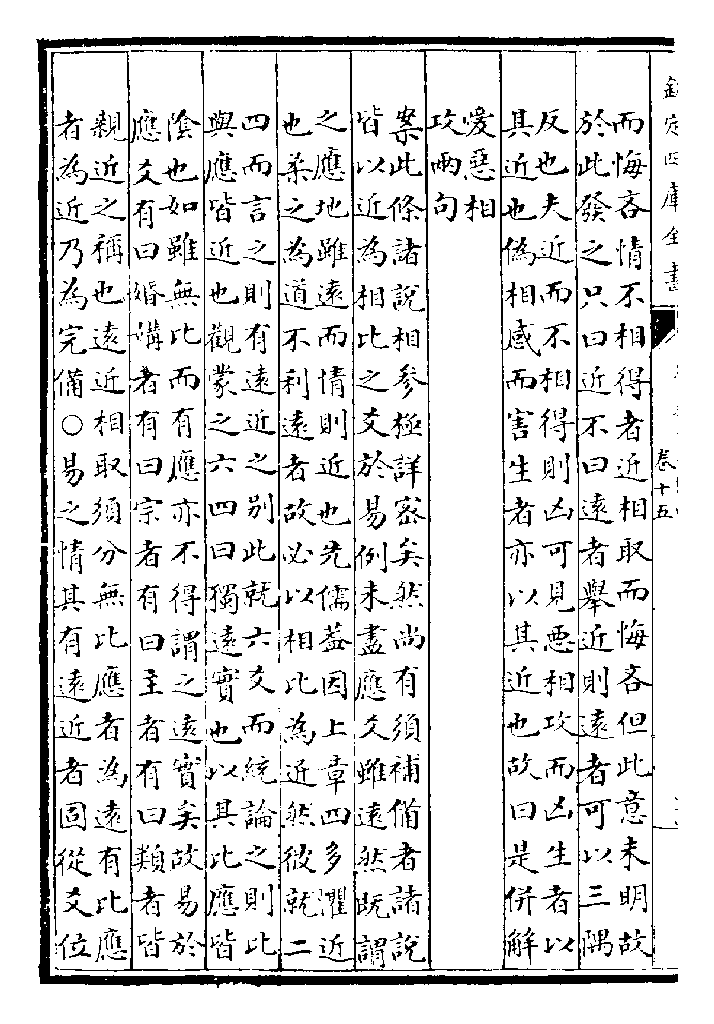 欽定四庫全書
卷十五
而悔吝情不相得者近相取而悔吝但此意未明故
於此發之只曰近不曰遠者舉近則遠者可以三隅
反也夫近而不相得則凶可見惡相攻而凶生者以
其近也偽相感而害生者亦以其近也故曰是併解
愛惡相
攻兩句
案此條諸說相參極詳密矣然尚有須補備者諸說
皆以近為相比之爻於易例未盡應爻雖遠然既謂
之應地雖遠而情則近也先儒蓋因上章四多懼近
也柔之為道不利遠者故必以相比為近然彼就二
四而言之則有遠近之別此就六爻而統論之則比
與應皆近也觀蒙之六四曰獨遠實也以其比應皆
陰也如雖無比而有應亦不得謂之遠實矣故易於
應爻有曰婚媾者有曰宗者有曰主者有曰類者皆
親近之稱也遠近相取須分無比應者為遠有比應
者為近乃為完備○易之情其有遠近者固從爻位